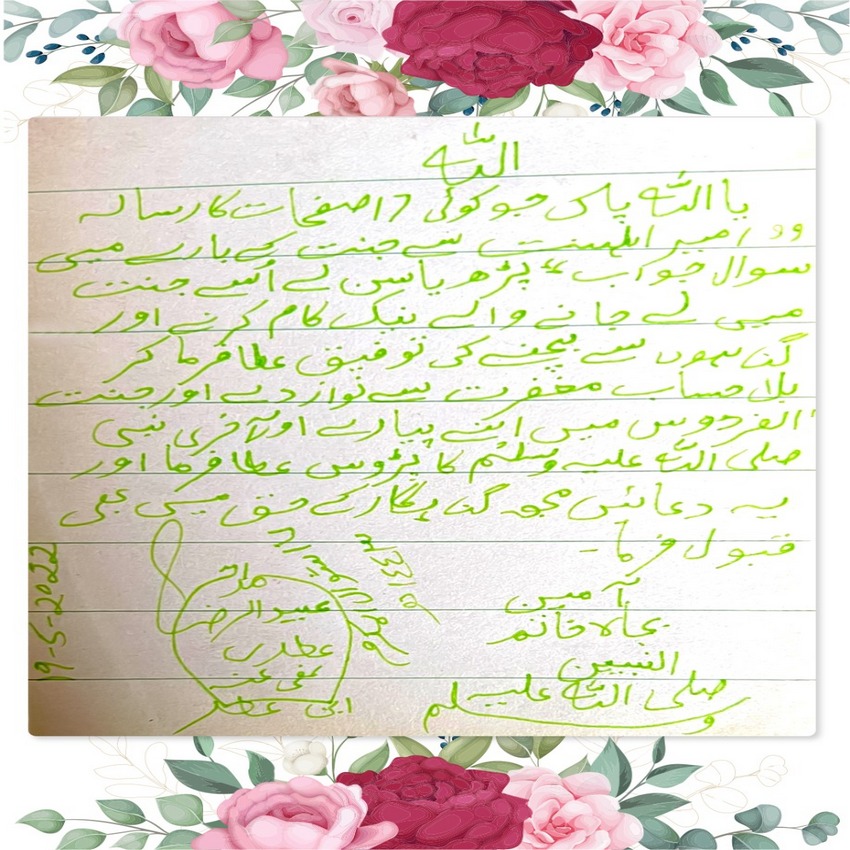 یا اللہ
یا اللہ پاک جو کوئی 17 صفحات کا رسالہ
”امیر اہلسنت سے جنت کے بارے میں
سوال جواب“ پڑھ یا سن لے اُسے جنت
میں لے جانے والے نیک کام کرنے اور
گناہوں سے بچنے کی توفیق عطا فرما کر
بلا حساب مغفرت سے نواز دے اور جنت
الفردوس میں اپنے پیارے اور آخری نبی
صلی اللہ علیہ وسلم کا پڑوس عطا فرما اور
یہ دعائیں مجھ گناہگار کے حق میں بھی
قبول فرما۔
آمین
بجاہ خاتم
النبیین
صلی اللہ علیہ
وسلم
عبید الرضا
عطاری
عفی عنہ
ابن عطار
19-5-2022